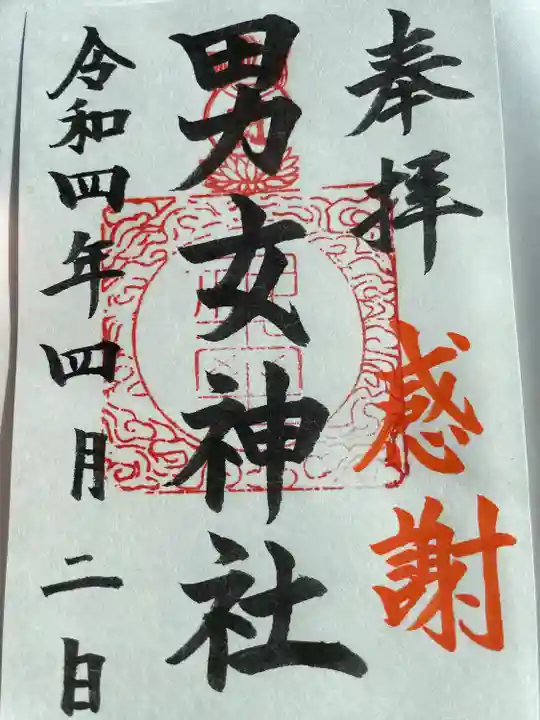 奉拝
感謝
男女神社
令和四年四月二日